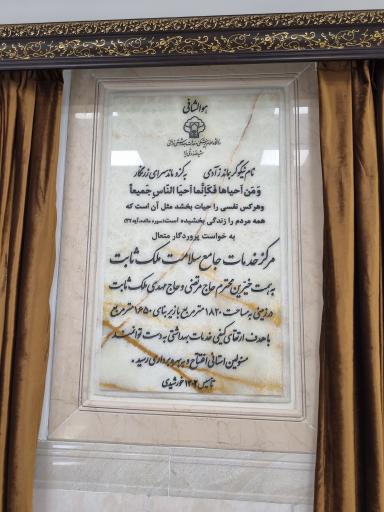 هوالشافی
نام نیکو گر بماند ز آدمی به کزو ماند سرای زرنگار
وَ مَن اَحیاها فَکَاَنَّما اَحیَا النّاسَ جَمیعاً
و هرکس نفسی را حیات بخشد مثل آن است که
همه مردم را زندگی بخشیده است (سوره مائده آیه ۳۲)
به خواست پروردگار متعال
مرکز خدمات جامع سلامت ملک ثابت
به همت خیرین محترم حاج مرتضی و حاج مهدی ملک ثابت
در زمینی به مساحت ۱۸۲۰ متر مربع با زیر بنای ۱۶۵۰ متر مربع
با هدف ارتقای کیفی خدمات بهداشتی به دست توانمند
مسئولین استانی افتتاح و به بهره برداری رسید.
تأسیس ۱۴۰۲ خورشیدی